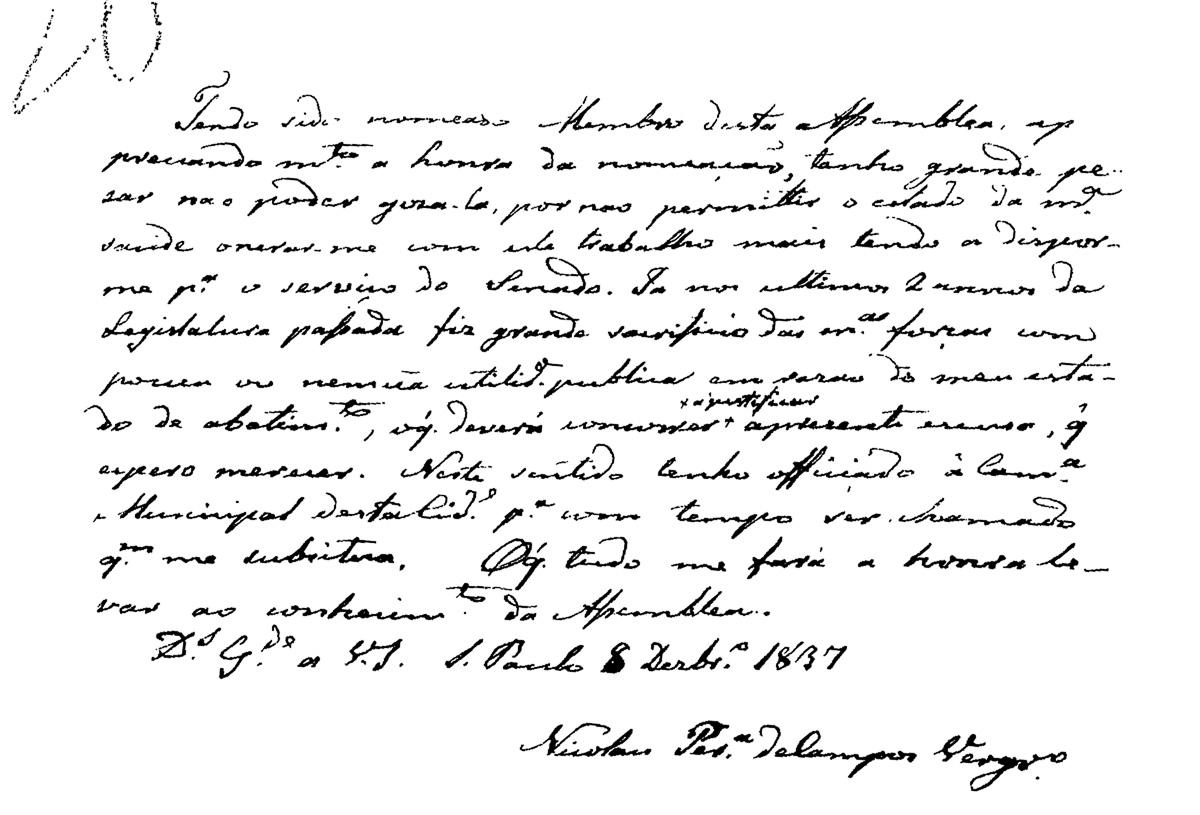 20
Tendo sido nomeado Membro desta Assemblea, ap
preciando m.to a honra da nomeação, tenho grande pe-
zar nao poder goza-la, por nao permittir o estado da m.a
saude onerar-me com este trabalho mais tendo a dispor-
me p.a o serviço do Senado. Ja nos ultimos 2 annos da
Legislatura passada fiz grande sacrificio das m.as forças com
pouca ou nenũa utilid.e publica em razao do meu esta-
do de abatim.to, oq. deverá concorrer + apresente escusa, q̃
+ a justificar
espero merecer. Neste sentido tenho officiado à Cam.a
Municipal desta Cid.e p.a com tempo ser chamado
q.m me substitua. Oq. tudo me fará a honra le-
var ao conhecim.to da Assemblea.
D.s G.de a V.S. S. Paulo 8 Dezbr.o 1837
Nicolau Per.a de Campos Vergr.o